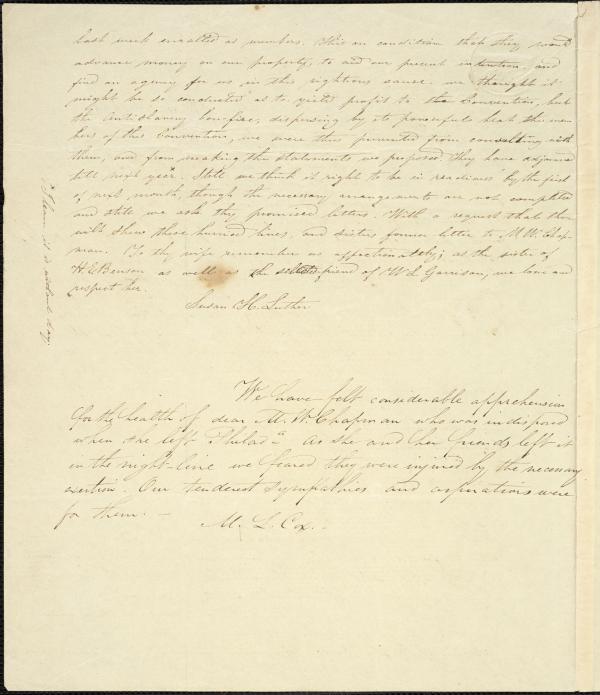 last week enrolled as members. This on condition that they would
advance money on our property, to aid our present intention, and
find an agency for us in this righteous cause. we thought it
might be so conducted as to yield profit to the Convention, but
the antislavery bonfire, dispersing by its powerful heat the mem
bers of this Convention, we were thus prevented from consulting with
them, and from making the statements we proposed. They have adjourned
till next year. Still we think it right to be in readiness by the first
of next month, though the necessary arrangements are not completed
and still we ask thy promised letters. With a request that thou
wilt shew these hurried lines, and sisters former letter to M. W. Chap-
man. To thy wife remember us affectionately; as the sister of
H. E. Benson as well as the selected friend of W L Garrison, we love and
respect her.
Susan H. Luther
We have felt considerable apprehension
for the health of dear M. W. Chapman who was indisposed
when she left Philada as she and her friends left it
in the night-line we feared they were injured by the necessary
exertion. Our tenderest sympathies and aspirations were
for them. –
M. L. Cox.